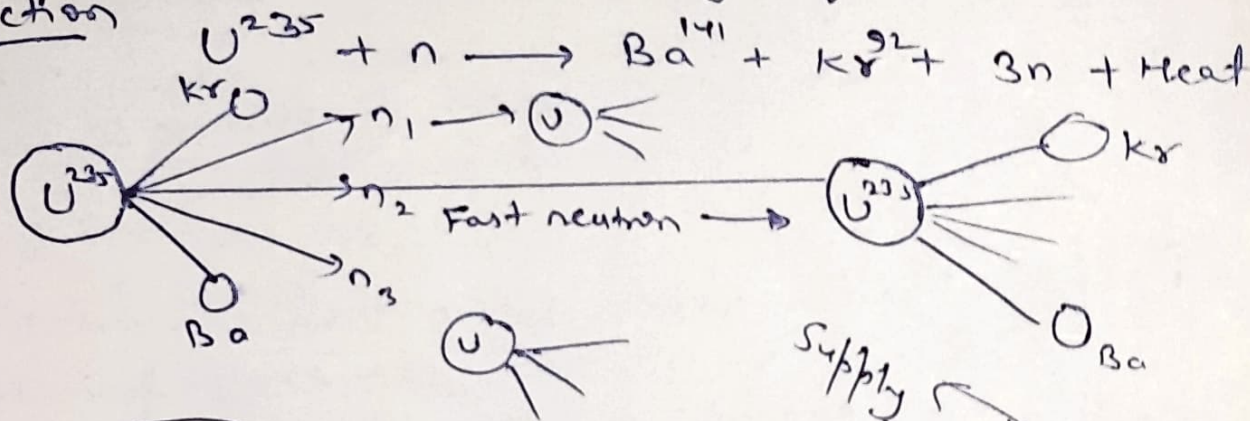 ction
U²³⁵ + n → Ba¹⁴¹ + Kr⁹² + 3n + Heat
Kr
n₁ → U
U²³⁵
n₂
Fast neutron →
U²³⁵
Kr
n₃
Ba
U
Ba
Supply